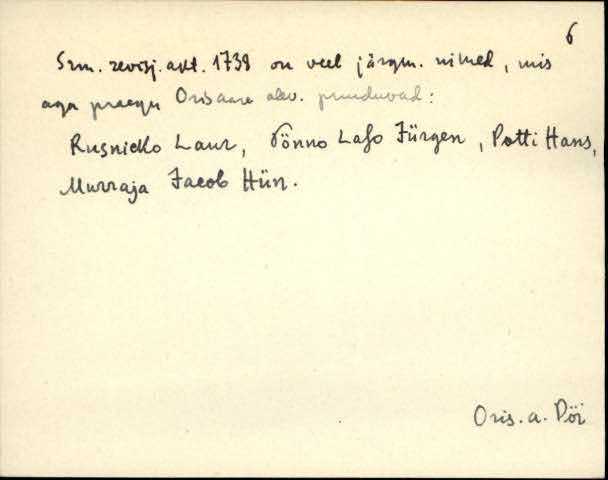 6
Srm. revisj. akt. 1738 on veel järgm. nimed, mis
aga praegu Orisaare alev. puuduvad:
Rusnicko Laur, Tönno Laſo Jürgen, Potti Hans,
Murraja Jacob Hün.
Oris. a. Pöi